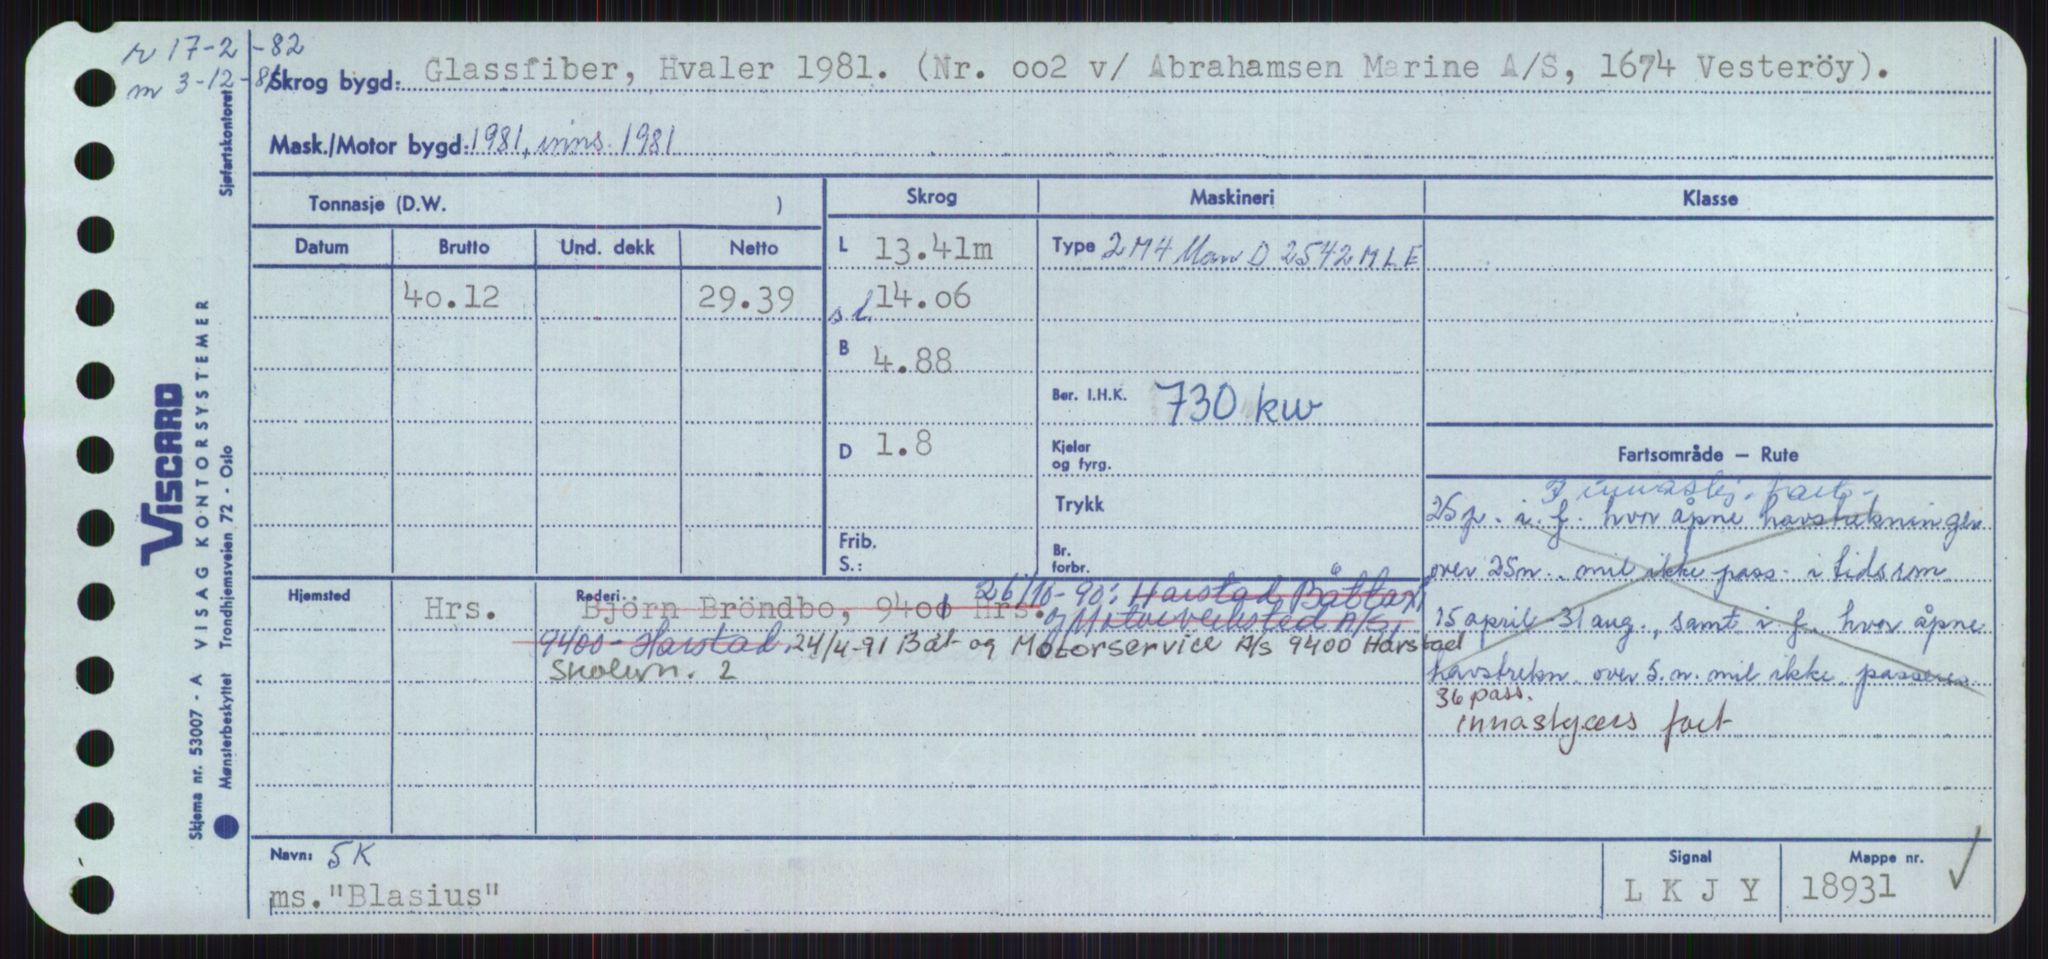 r 17-2-82
m 3-12-81
Skrog bygd: Glassfiber, Hvaler 1981. (Nr. oo2 v/ Abrahamsen Marine A/S, 1674 Vesteröy).
Mask./Motor bygd: 1981, inns. 1981
Sjøfartskontoret
VISCARD
VISAG KONTORSYSTEMER
Skjema nr. 53007 - A
Mønsterbeskyttet Trondhjemsveien 72 - Oslo
Tonnasje (D.W. )
Skrog
Maskineri
Klasse
Datum Brutto Und. dekk Netto
L 13.41m
Type 2 M4 Man D 2542 MLE
40.12 29.39
s l. 14.o6
B 4.88
Ber. I.H.K. 730 kw
D 1.8
Kjeler
og fyrg.
Trykk
Frib.
S.:
Br.
forbr.
Fartsområde — Rute
innaskj. fart.
25 p. i. f. hvor åpne havstrekninger
over 25 n. mil ikke pass. i tidsrom
15 april - 31 aug., samt i f. hvor åpne
havstrekn. over 5. n. mil ikke passeres
36 pass.
innaskjærs fart
Hjemsted Hrs.
Rederi
Björn Bröndbo, 9400 Hrs.
26/10-90: Harstad Båttaxi
og Motorverksted A/S,
9400 - Harstad. 24/4-91 Båt- og Motorservice A/s 9400 Harstad
Skolevn. 2
Navn: 5K
ms. "Blasius"
Signal
L K J Y
Mappe nr.
18931